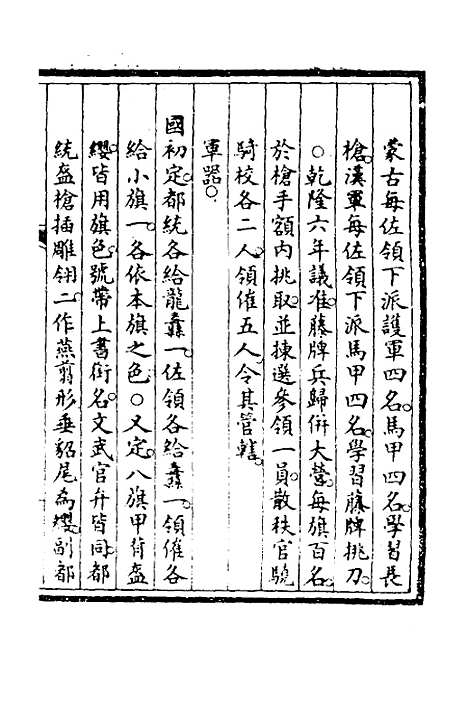 蒙古每佐領下派護軍四名。馬甲四名。學習長
槍。漢軍每佐領下派馬甲四名。學習藤牌挑刀。
○乾隆六年議准。藤牌兵歸併大營。每旗百名。
於槍手額内挑取。並揀選參領一員。散秩官驍
騎校各二人。領催五人。令其管轄。
軍器。○
國初定。都統各給龍纛一。佐領各給纛一。領催各
給小旗一。各依本旗之色。○又定。八旗甲胄盔
纓。皆用旗色。號帶上書銜名。文武官弁皆同。都
統盔槍插雕翎二。作燕翦形。垂貂尾為纓。副都